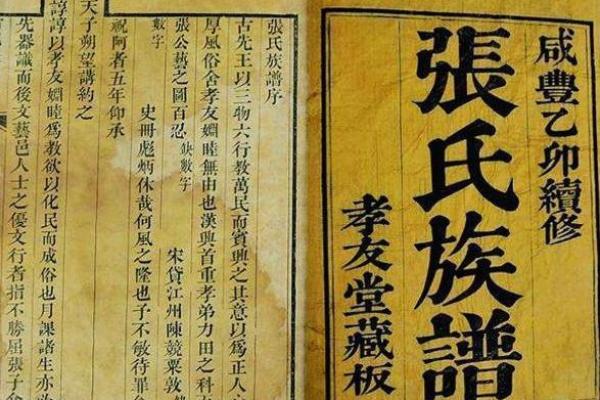 咸豐乙卯續修
張氏族譜
孝友堂藏板
張氏族譜序
古先王以三物六行教萬民而賓興之其意以爲正人
厚風俗舍孝友婣睦無由也漢興首重孝弟力田之科
張公藝之圖百忍 缺數字 宋貸江州陳競粟敦
數字 史冊彪炳休哉何風之隆也予不敏待罪
祝阿者五年仰承
天子朔望講約之
諄諄以孝友婣睦爲教欲以化民而成俗也月課諸生亦
先器識而後文藝邑人士之優文行者指不勝屈張子